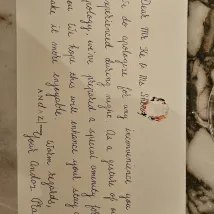 Dear Mr Xu & Ms
We do apologize for any inconvenience you
experienced during night. As a gesture of
apology, we've prepared a special amenity for
you. We hope this will enhance your stay
make it more enjoyable.
Warm regards,
Your Andaz